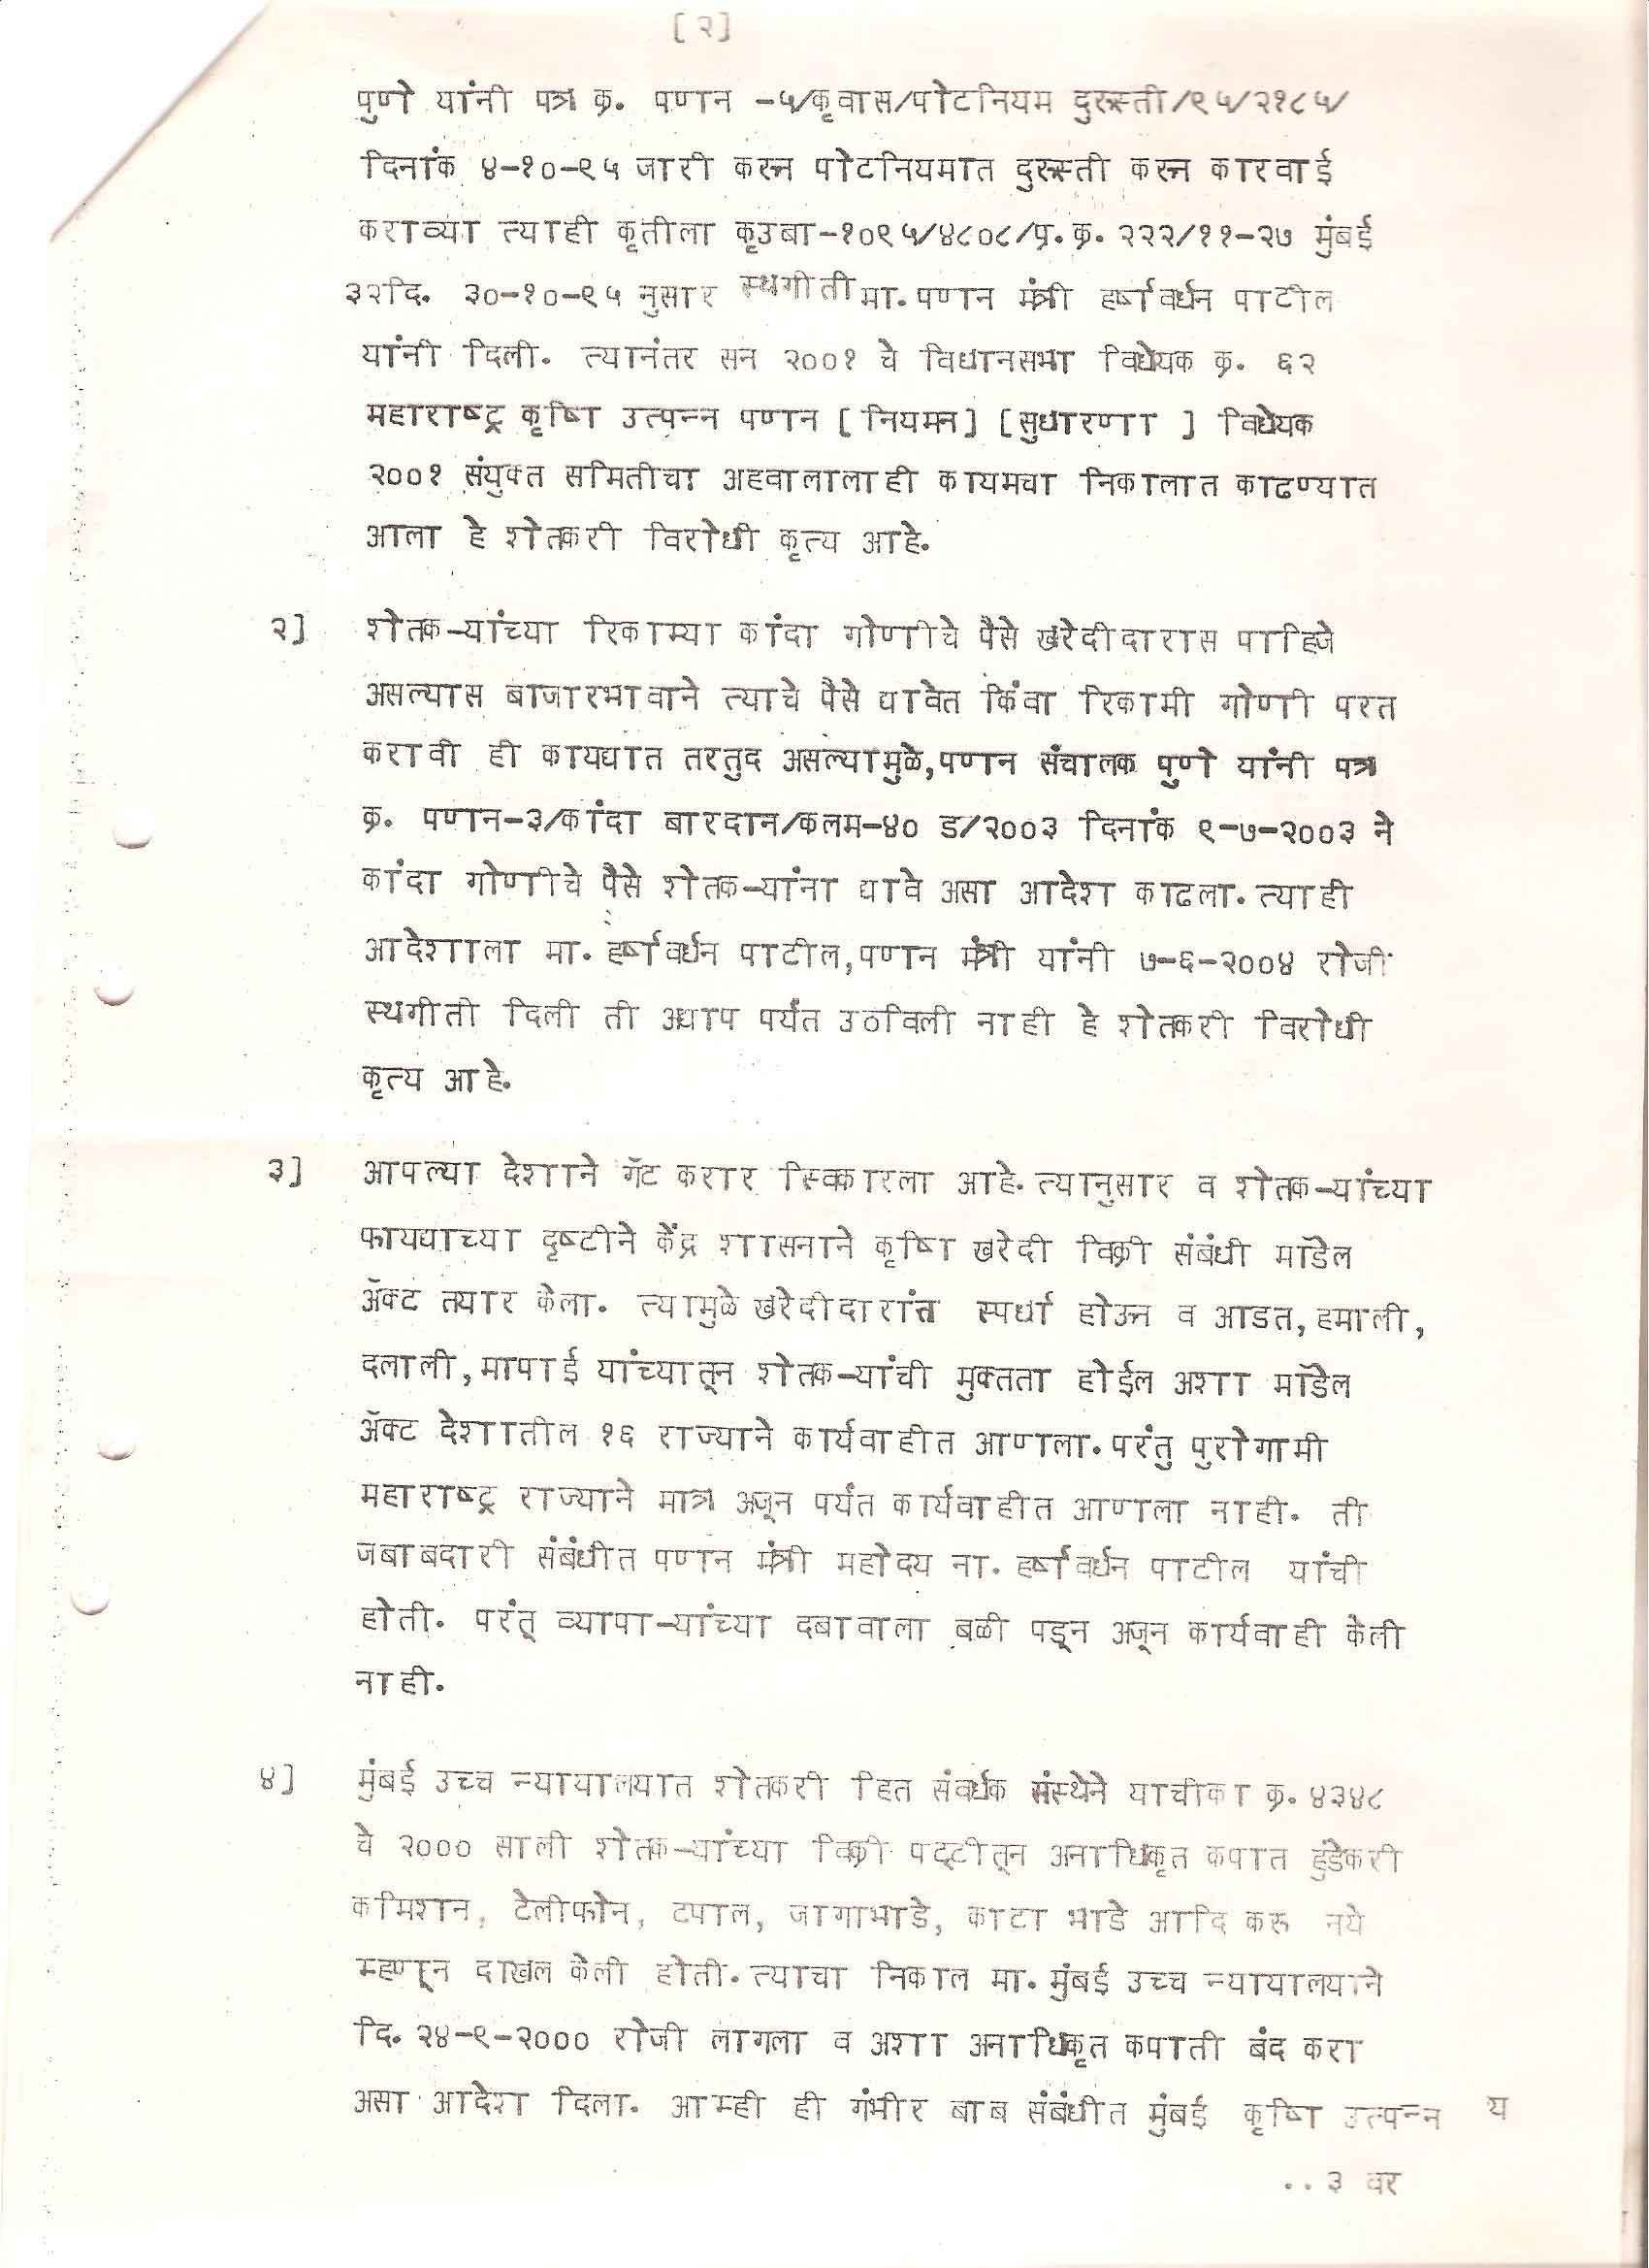 [२]
पुणे यांनी पत्र क्र. पणन -५/कृवास/पोटनियम दुरुस्ती/९५/२१८५/
दिनांक ४-१०-९५ जारी करून पोटनियमात दुरुस्ती करून कारवाई
कराव्या त्याही कृतीला कृउबा-१०९५/४८०८/प्र.क्र. २२२/११-२७ मुंबई
३२दि. ३०-१०-९५ नुसार स्थगीती मा. पणन मंत्री हर्षवर्धन पाटील
यांनी दिली. त्यानंतर सन २००१ चे विधानसभा विधेयक क्र. ६२
महाराष्ट्र कृषि उत्पन्न पणन [नियमन] [सुधारणा ] विधेयक
२००१ संयुक्त समितीचा अहवालालाही कायमचा निकालात काढण्यात
आला हे शेतकरी विरोधी कृत्य आहे.
२] शेतक-यांच्या रिकाम्या कांदा गोणीचे पैसे खरेदीदारास पाहिजे
असल्यास बाजारभावाने त्याचे पैसे द्यावेत किंवा रिकामी गोणी परत
करावी ही कायद्यात तरतुद असल्यामुळे,पणन संचालक पुणे यांनी पत्र
क्र. पणन-३/कांदा बारदान/कलम-४० ड/२००३ दिनांक ९-७-२००३ ने
कांदा गोणीचे पैसे शेतक-यांना द्यावे असा आदेश काढला. त्याही
आदेशाला मा. हर्षवर्धन पाटील,पणन मंत्री यांनी ७-६-२००४ रोजी
स्थगीती दिली ती अद्याप पर्यंत उठविली नाही हे शेतकरी विरोधी
कृत्य आहे.
३] आपल्या देशाने गॅट करार स्विकारला आहे. त्यानुसार व शेतक-यांच्या
फायद्याच्या दृष्टीने केंद्र शासनाने कृषि खरेदी विक्री संबंधी मॉडेल
ॲक्ट तयार केला. त्यामुळे खरेदीदारांत स्पर्धा होऊन व आडत,हमाली,
दलाली,मापाई यांच्यातून शेतक-यांची मुक्तता होईल अशा मॉडेल
ॲक्ट देशातील १६ राज्याने कार्यवाहीत आणला. परंतु पुरोगामी
महाराष्ट्र राज्याने मात्र अजून पर्यंत कार्यवाहीत आणला नाही. ती
जबाबदारी संबंधीत पणन मंत्री महोदय ना. हर्षवर्धन पाटील यांची
होती. परंतू व्यापा-यांच्या दबावाला बळी पडून अजून कार्यवाही केली
नाही.
४] मुंबई उच्च न्यायालयात शेतकरी हित संवर्धक संस्थेने याचीका क्र. ४३४८
चे २००० साली शेतक-यांच्या विक्री पट्टीतून अनाधिकृत कपात हुंडेकरी
कमिशन, टेलीफोन, टपाल, जागाभाडे, काटा भाडे आदि करू नये
म्हणून दाखल केली होती. त्याचा निकाल मा. मुंबई उच्च न्यायालयाने
दि. २४-९-२००० रोजी लागला व अशा अनाधिकृत कपाती बंद करा
असा आदेश दिला. आम्ही ही गंभीर बाब संबंधीत मुंबई कृषि उत्पन्न य
..३ वर